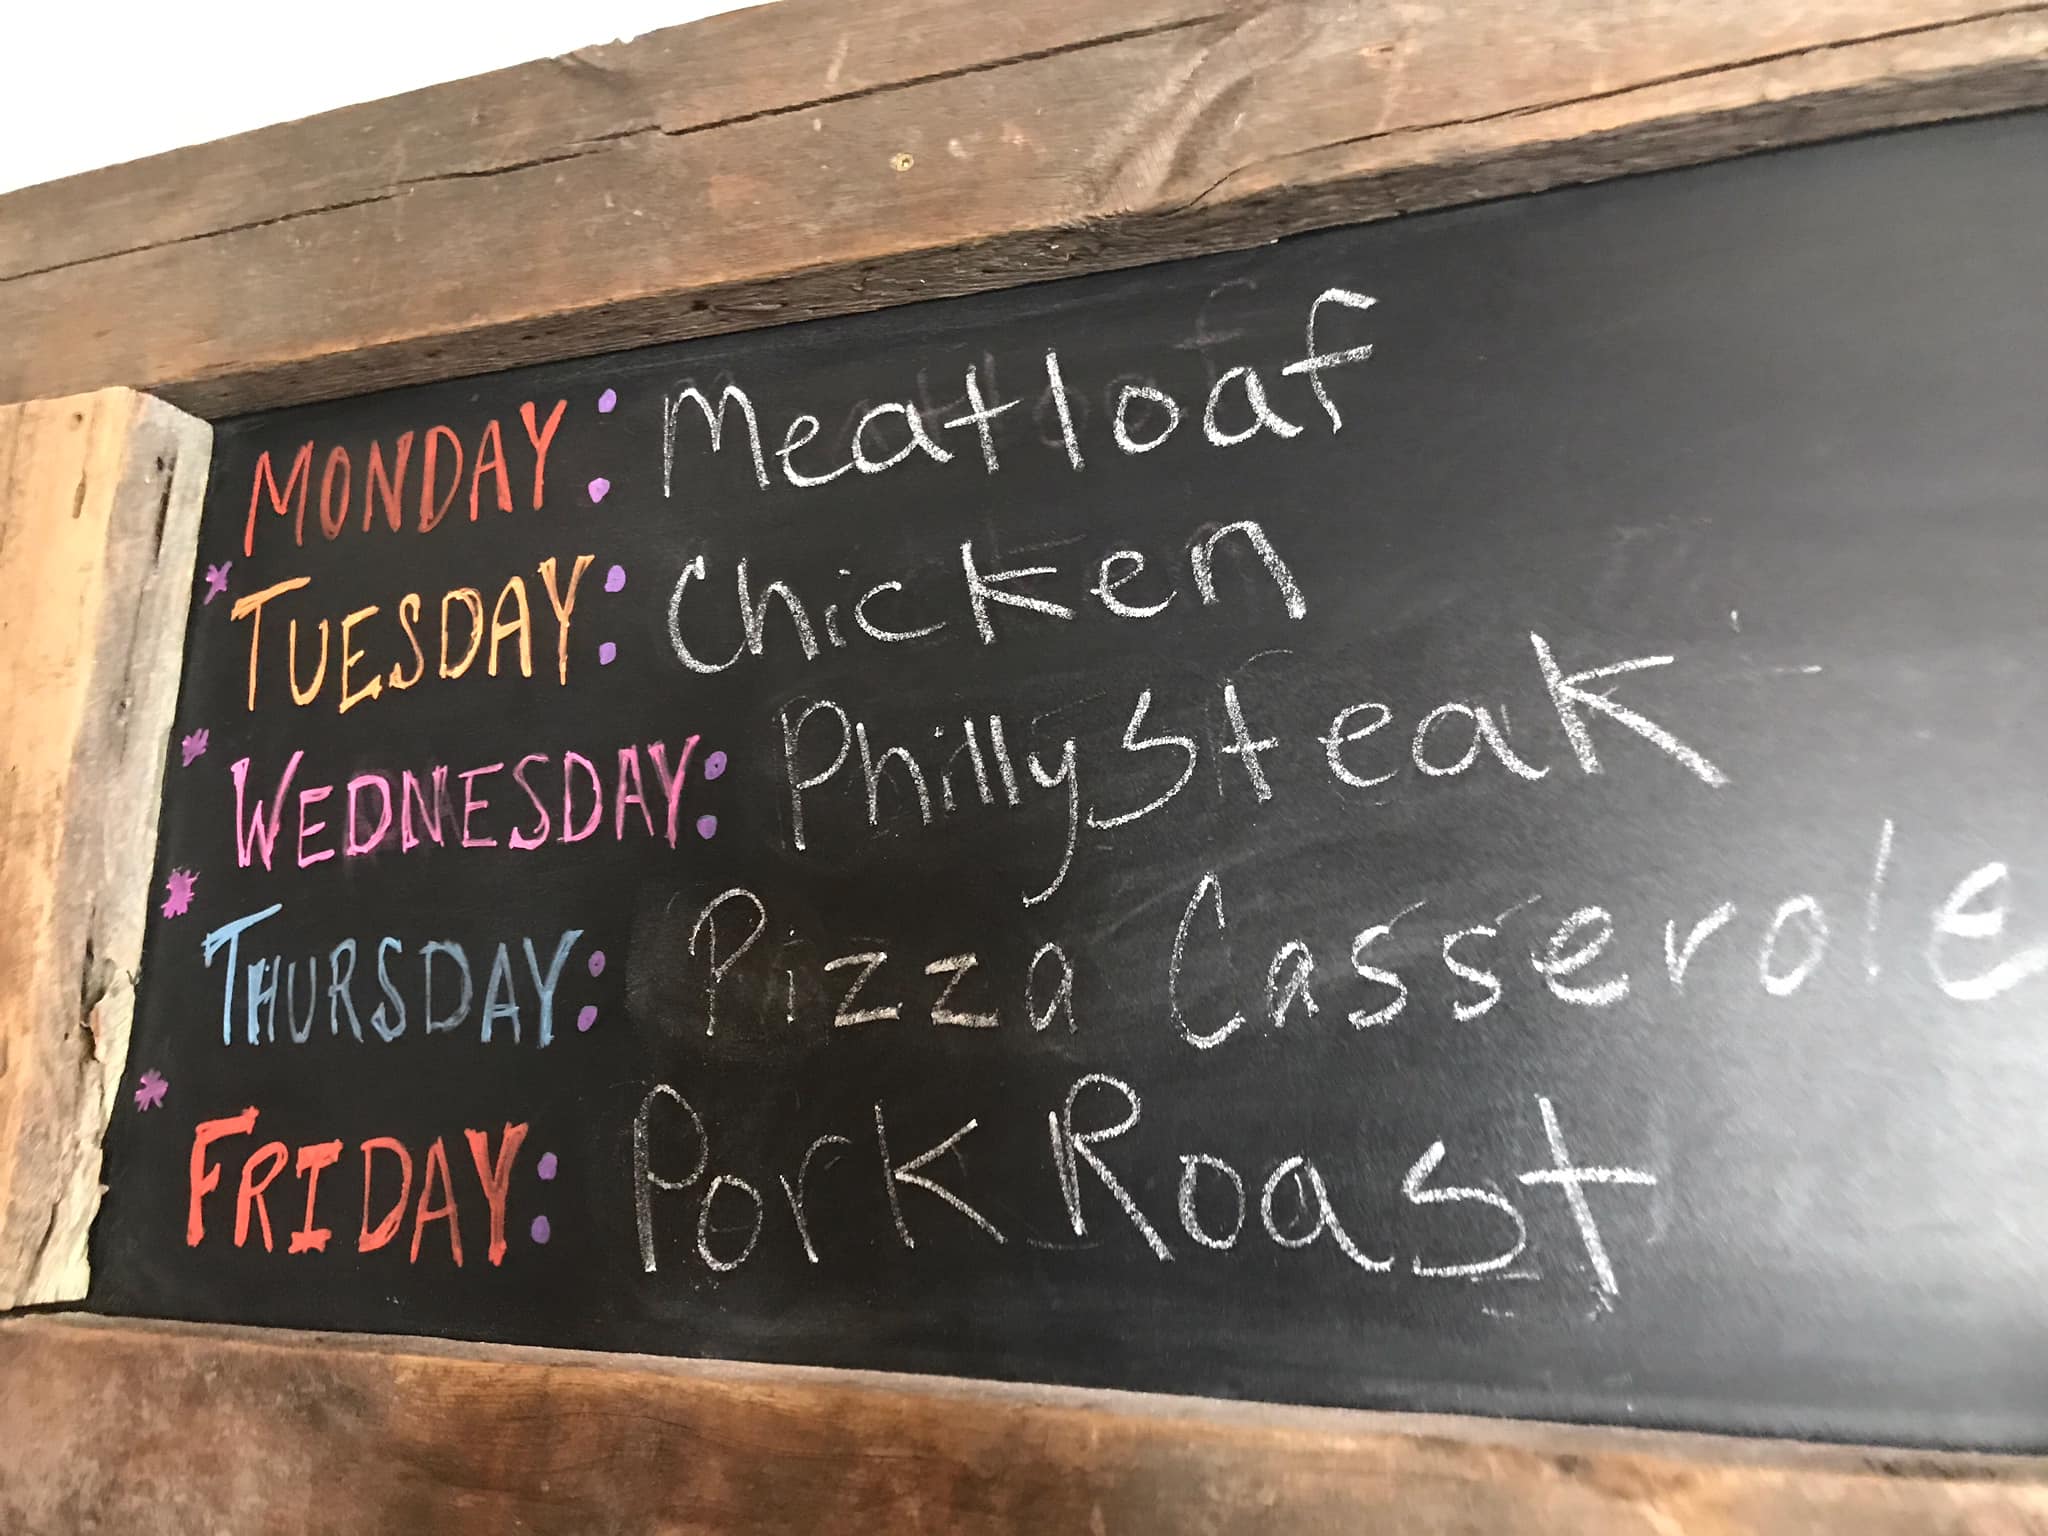 MONDAY: Meatloaf
* TUESDAY: Chicken
* WEDNESDAY: Philly Steak
* THURSDAY: Pizza Casserole
* FRIDAY: Pork Roast